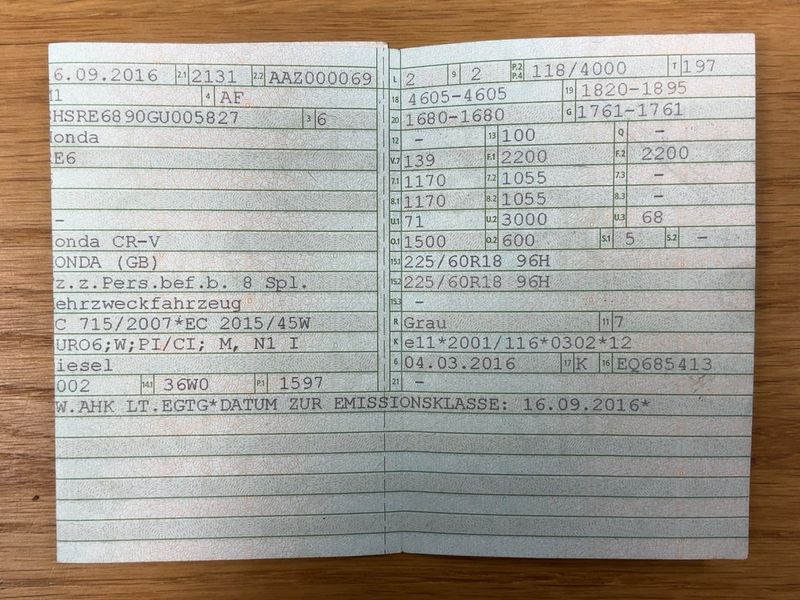 6.09.2016 2.1 2131 2.2 AAZ000069
1 4 AF
HSRE6890GU005827 3 6
onda
E6
-
onda CR-V
ONDA (GB)
z.z.Pers.bef.b. 8 Spl.
ehrzweckfahrzeug
C 715/2007*EC 2015/45W
URO6;W;PI/CI; M, N1 I
iesel
002 14.1 36W0 P.1 1597
W.AHK LT.EGTG*DATUM ZUR EMISSIONSKLASSE: 16.09.2016*
L 2 9 2 P.2 P.4 118/4000 T 197
18 4605-4605 19 1820-1895
20 1680-1680 G 1761-1761
12 - 13 100 Q -
V.7 139 F.1 2200 F.2 2200
7.1 1170 7.2 1055 7.3 -
8.1 1170 8.2 1055 8.3 -
U.1 71 U.2 3000 U.3 68
O.1 1500 O.2 600 S.1 5 S.2 -
15.1 225/60R18 96H
15.2 225/60R18 96H
15.3 -
R Grau 11 7
K e11*2001/116*0302*12
6 04.03.2016 17 K 16 EQ685413
21 -